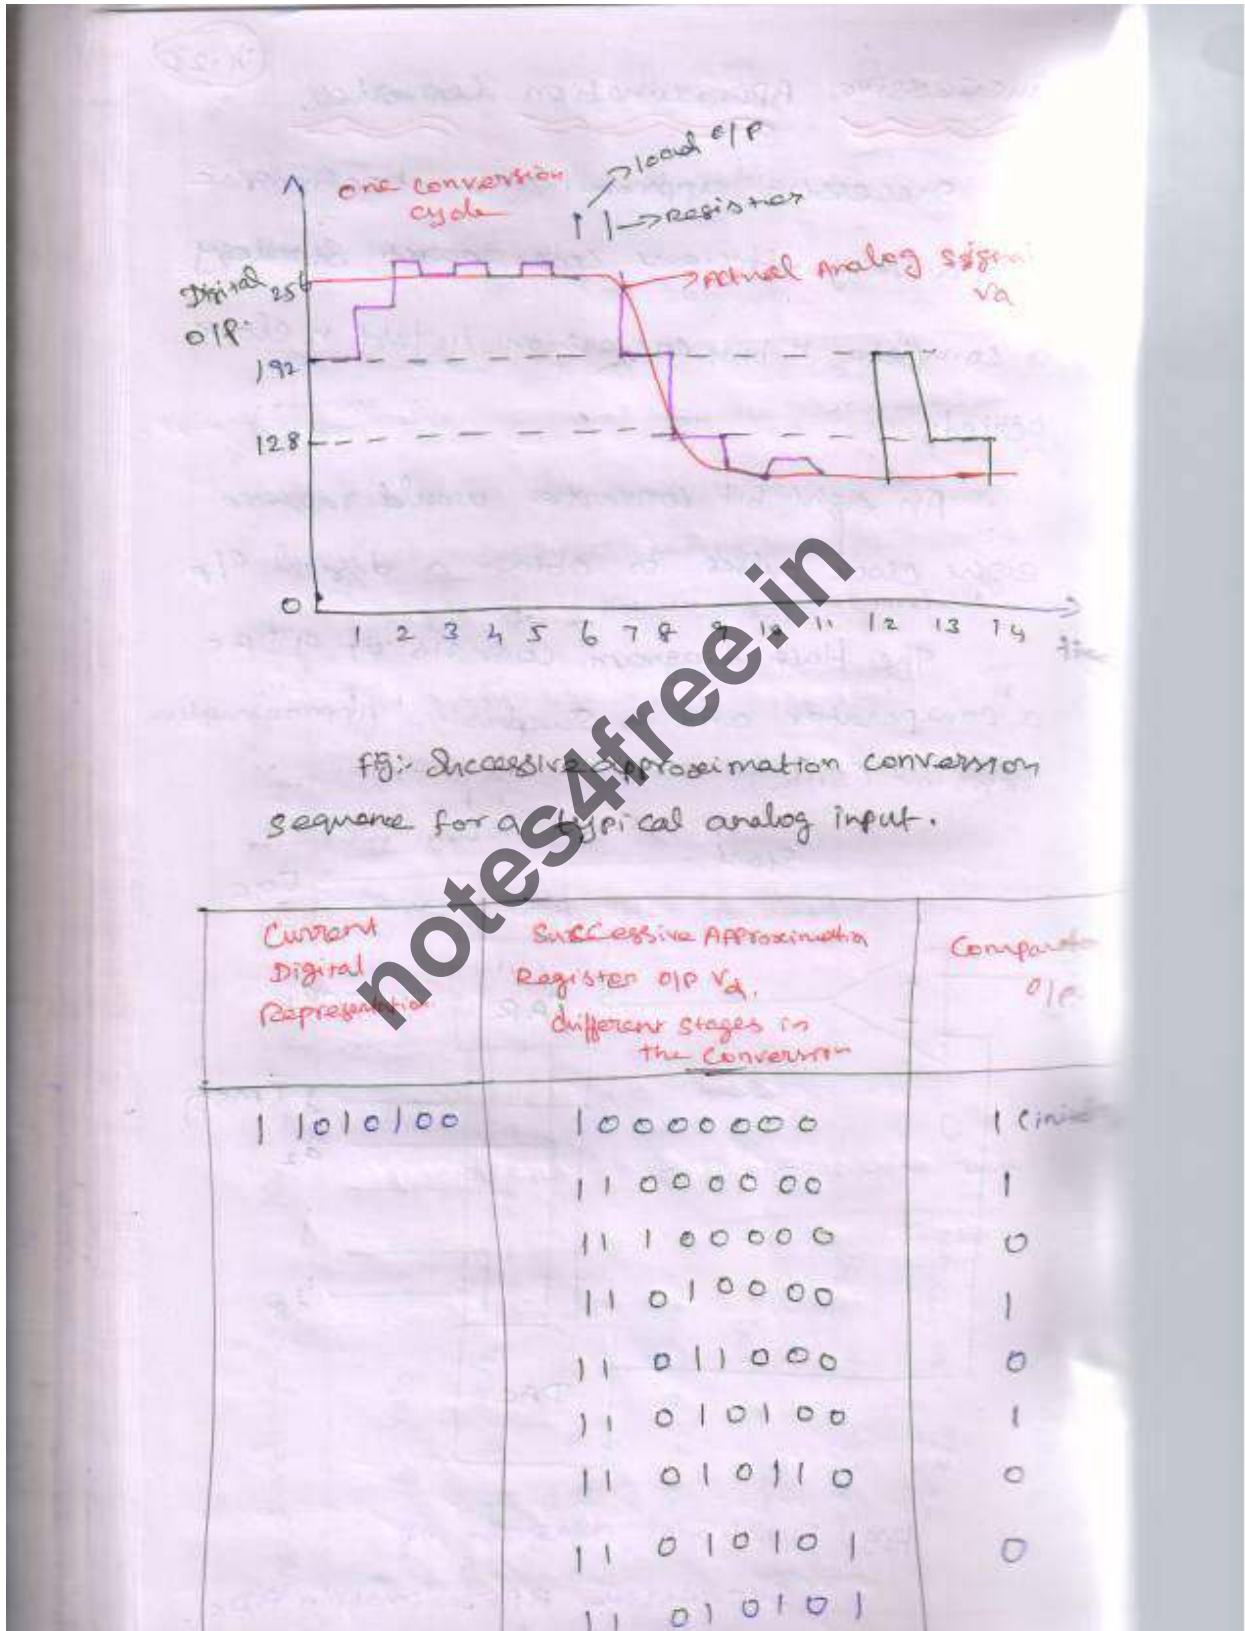 one conversion
cycle
load o/p
Register
Actual Analog Signal
Va
Digital
O/P.
256
192
128
0
1 2 3 4 5 6 7 8 9 10 11 12 13 14
fig:- Successive approximation conversion
sequence for a typical analog input.
notes4free.in
Current
Digital
Representation
Successive Approximation
Register O/P Vd,
different stages in
the conversion
O/P.
11010100
10000000
1
11000000
1
11100000
0
11010000
1
11011000
0
11010100
1
11010110
0
11010101
0
11010101